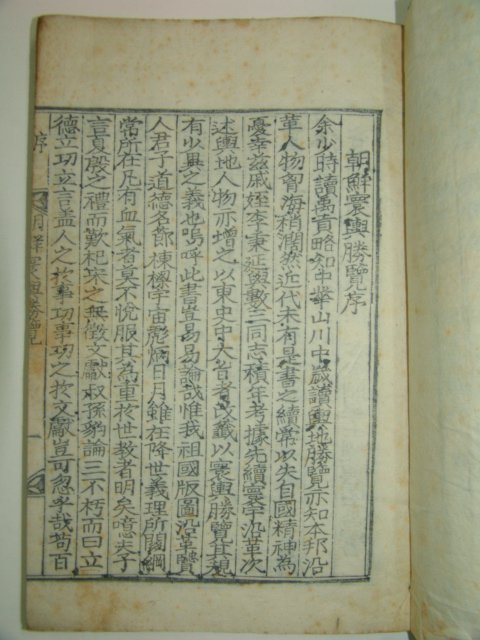 朝鮮寰輿勝覽序
余少時讀禹貢略知中華山川中歲讀輿地勝覽亦知本邦沿
革人物胷海稍濶然近代未有是書之續常以失自國精神為
憂幸玆戚姪李秉延與數三同志積年考據先續寰宇沿革次
述輿地人物亦增之以東史中大旨者改籤以寰輿勝覽其規
有少異之義也嗚呼此書豈易易論哉惟我祖國版圖沿革賢
人君子道德名節棟樑宇宙彪炳日月雖在降世義理所關綱
常所在凡有血氣者莫不悅服其為重於世教者明矣噫夫子
言夏殷之禮而歎杞宋之無徵文獻叔孫豹論三不朽而曰立
德立功立言盖人之於事功事功之於文獻豈可忽乎哉苟百
序
朝鮮寰輿勝覽